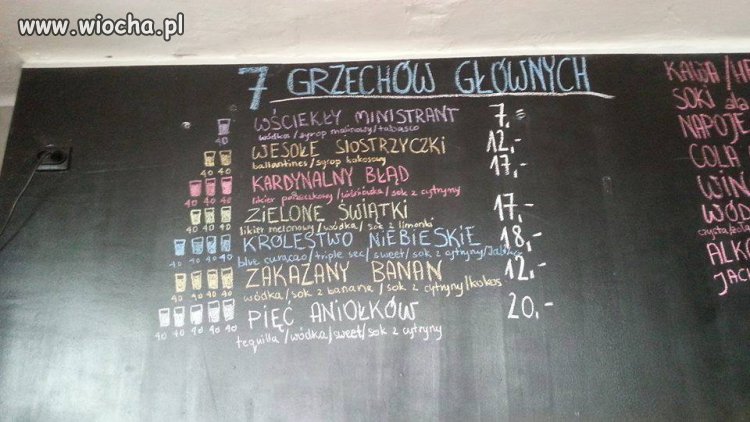 www.wiocha.pl
7 GRZECHÓW GŁÓWNYCH
WŚCIEKŁY MINISTRANT 7,-
40 wódka/syrop malinowy/tabasco
WESOŁE SIOSTRZYCZKI 12,-
40 40 ballantines/syrop kokosowy
KARDYNALNY BŁĄD 17,-
40 40 40 likier porzeczkowy/wiśniówka/sok z cytryny
ZIELONE ŚWIĄTKI 17,-
40 40 40 likier melonowy/wódka/sok z limonki
KRÓLESTWO NIEBIESKIE 18,-
40 40 40 40 blue curacao/triple sec/sweet/sok z cytryny
ZAKAZANY BANAN 12,-
40 40 40 40 wódka/sok z banana/sok z cytryny/kokos
PIĘĆ ANIOŁKÓW 20,-
40 40 40 40 40 tequilla/wódka/sweet/sok z cytryny
KAWA/
SOKI
NAPOJE
COLA